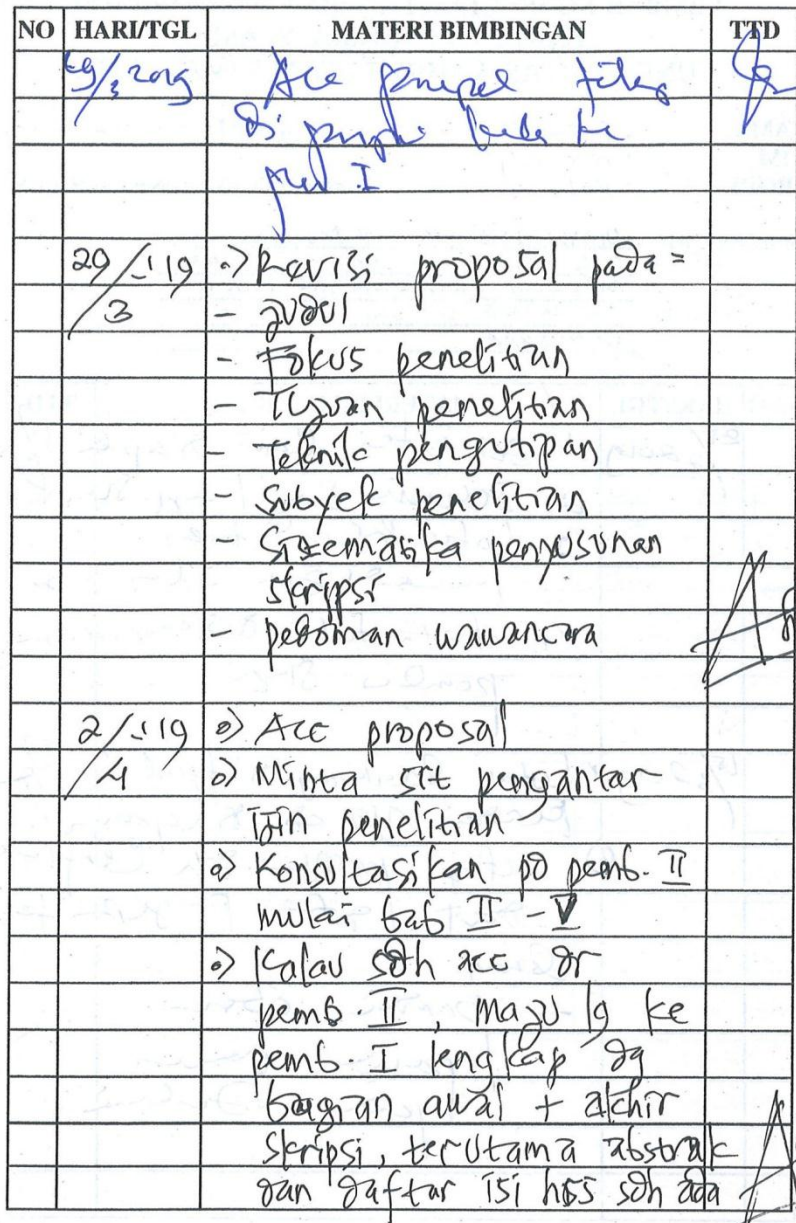 NO HARI/TGL MATERI BIMBINGAN TTD
Acc
I
29/3 '19 Revisi proposal pada =
- Judul
- Fokus penelitian
- Tujuan penelitian
- Teknik pengutipan
- Subyek penelitian
- Sistematika penyusunan
skripsi
- pedoman wawancara
2/4 '19 Acc proposal
Minta srt pengantar
ijin penelitian
Konsultasikan pd pemb. II
mulai bab II - V
Kalau sdh acc dr
pemb. II, maju lg ke
pemb. I lengkap dg
bagian awal + akhir
skripsi, terutama abstrak
dan daftar isi sdh ada